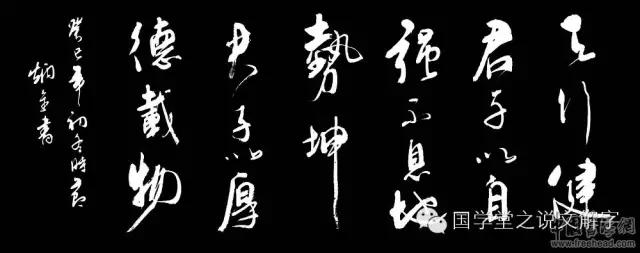 天行健
君子以自
强不息地
勢坤
君子以厚
德載物
癸巳年初冬時節
炳金書
国学堂之说文解字